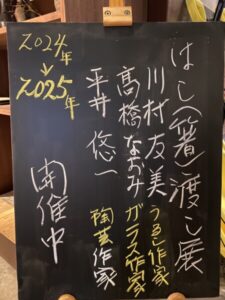 はし(箸)渡し展
川村友美 うるし作家
髙橋なおみ ガラス作家
平井悠一 陶芸作家
2024年
↓
2025年
開催中